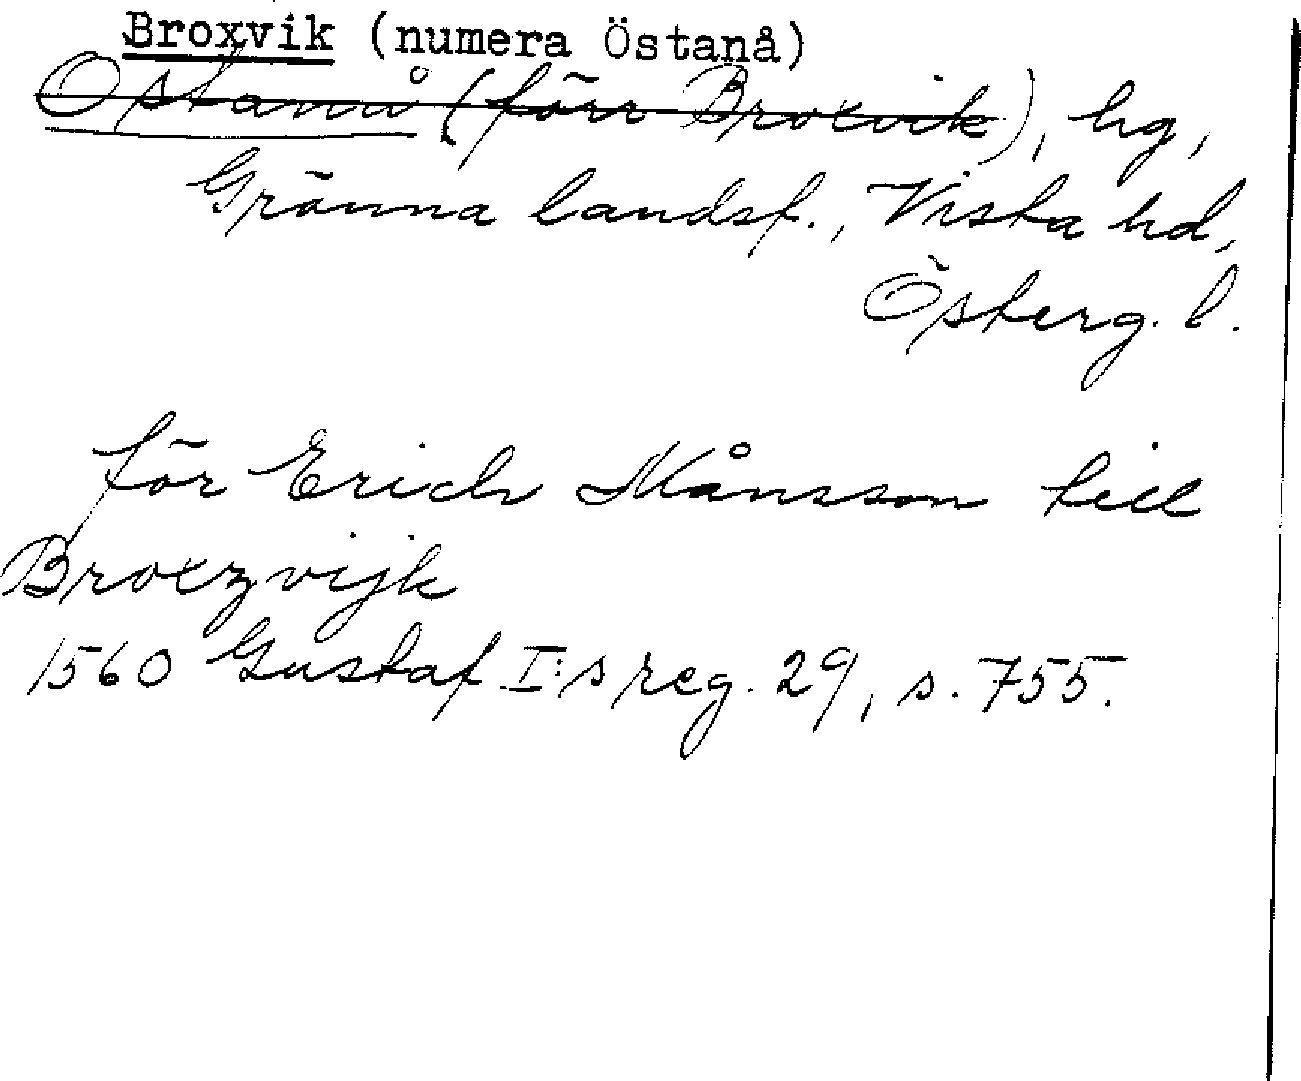 Broxvik (numera Östanå)
Östanå (förr Broxvik), hg,
Gränna landsf., Vista hd,
Österg. l.
för Erich Månsson till
Broxzvijk
1560 Gustaf I:s reg. 29, s. 755.